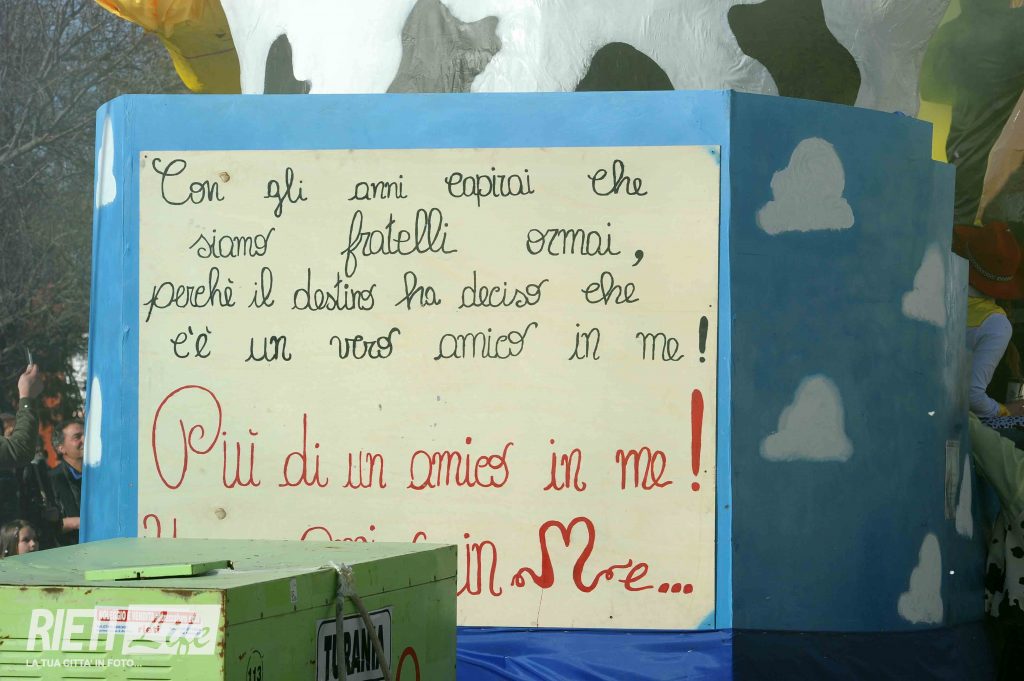 Con gli anni capirai che
siamo fratelli ormai,
perchè il destino ha deciso che
c'è un vero amico in me!
Più di un amico in me!
in Me...
RIETI Life
LA TUA CITTA' IN FOTO...
NOLEGGIO
TURANIA
113